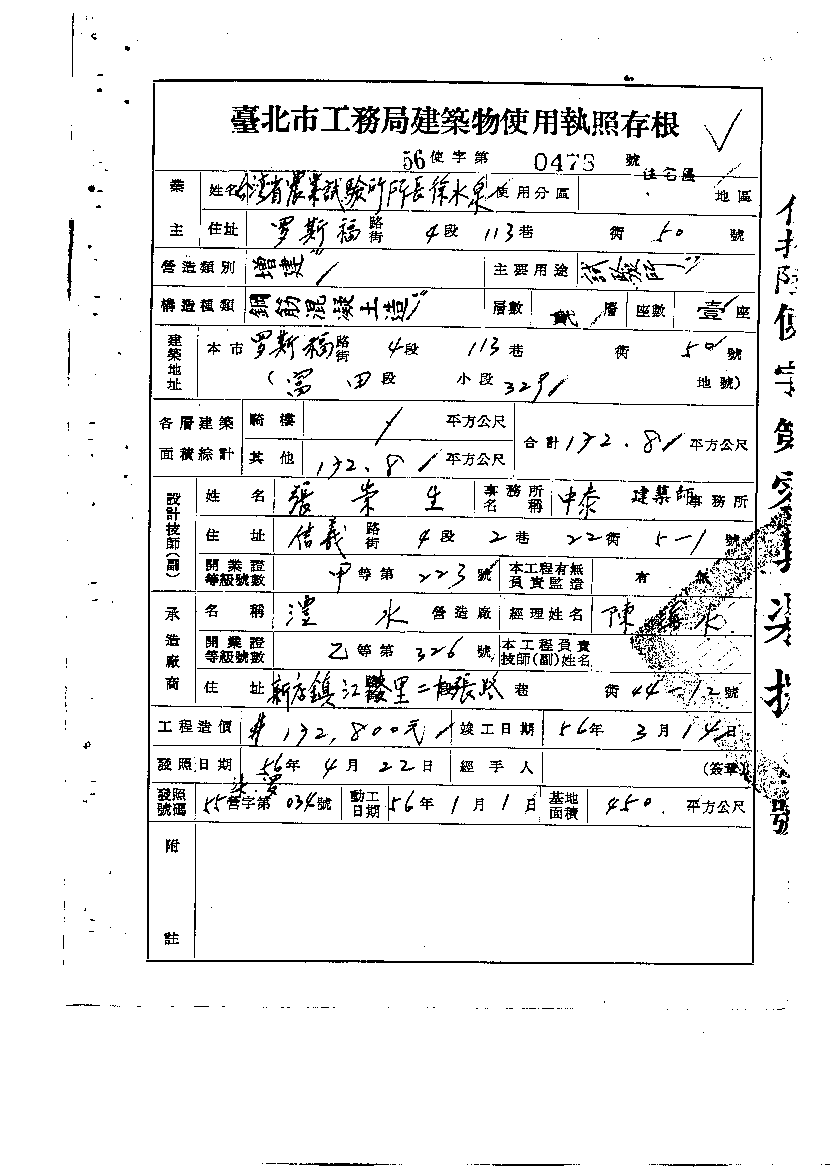 臺北市工務局建築物使用執照存根
56使字第 0473 號
業主 姓名 台灣省農業試驗所所長徐水泉 使用分區 住宅區 地區
住址 罗斯福 路街 4段 113巷 衖 50 號
營造類別 增建 主要用途 試驗所
構造種類 鋼筋混凝土造 層數 貳 層 座數 壹 座
建築地址 本市 罗斯福 路街 4段 113巷 衖 50 號
(富田段 小段 329 地號)
各層建築面積綜計 騎樓 平方公尺 合計 132.8 平方公尺
其他 132.8 平方公尺
設計技師(副) 姓名 張榮生 事務所名稱 中泰 建築師事務所
住址 信義 路街 4段 2巷 22衖 5-1 號
開業證等級號數 甲等第 223 號 本工程有無負責監造 有 無
承造廠商 名稱 水 營造廠 經理姓名 陳 水
開業證等級號數 乙等第 326 號 本工程負責技師(副)姓名
住址 新店鎮江陵里二十張路 巷 衖 44-12 號
工程造價 132,800元 竣工日期 56年 3月 14日
發照日期 56年 4月 22日 經手人 (簽章)
發照號碼 55營字第 034號 動工日期 56年 1月 1日 基地面積 450. 平方公尺
附註
使字第
號